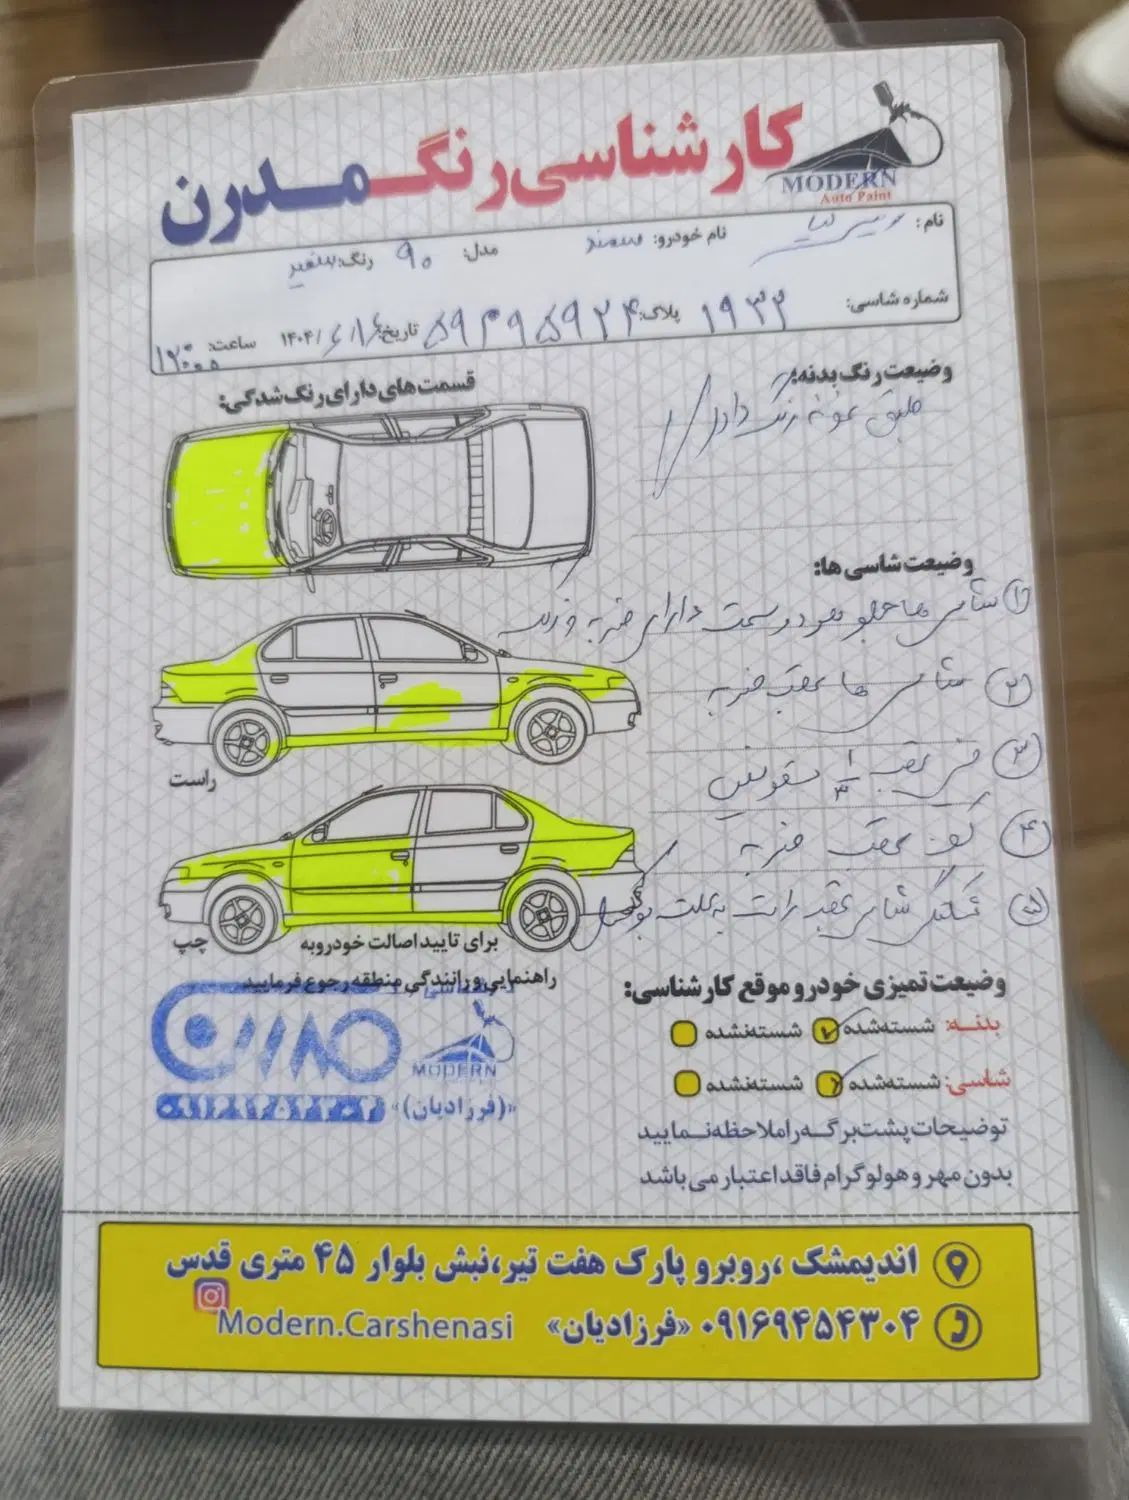 کارشناسی رنگ مدرن
MODERN
Auto Paint
نام: نام خودرو: سمند مدل: ۹۰ رنگ: سفید
شماره شاسی: ۱۹۳۳ پلاک: تاریخ: ۱۴۰۴/۶/۱۶ ساعت: ۱۲:۰۰
وضیعت رنگ بدنه:
طبق نمونه رنگ دارد
قسمت‌های دارای رنگ شدگی:
وضیعت شاسی ها:
۱) شاسی ها جلو هر دو سمت دارای ضربه و رنگ
۲) شاسی ها عقب ضربه
۳) عقب
۴) کف عقب ضربه
۵) شاسی عقب راست به علت
راست
چپ
برای تایید اصالت خودرو به
راهنمایی و رانندگی منطقه رجوع فرمایید
مدرن
MODERN
«(فرزادیان)»
وضیعت تمیزی خودرو موقع کارشناسی:
بدنه: شسته‌شده شسته‌نشده
شاسی: شسته‌شده شسته‌نشده
توضیحات پشت برگه را ملاحظه نمایید
بدون مهر و هولوگرام فاقد اعتبار می باشد
اندیمشک ،روبرو پارک هفت تیر،نبش بلوار ۴۵ متری قدس
۰۹۱۶۹۴۵۴۳۰۴ «فرزادیان» Modern.Carshenasi